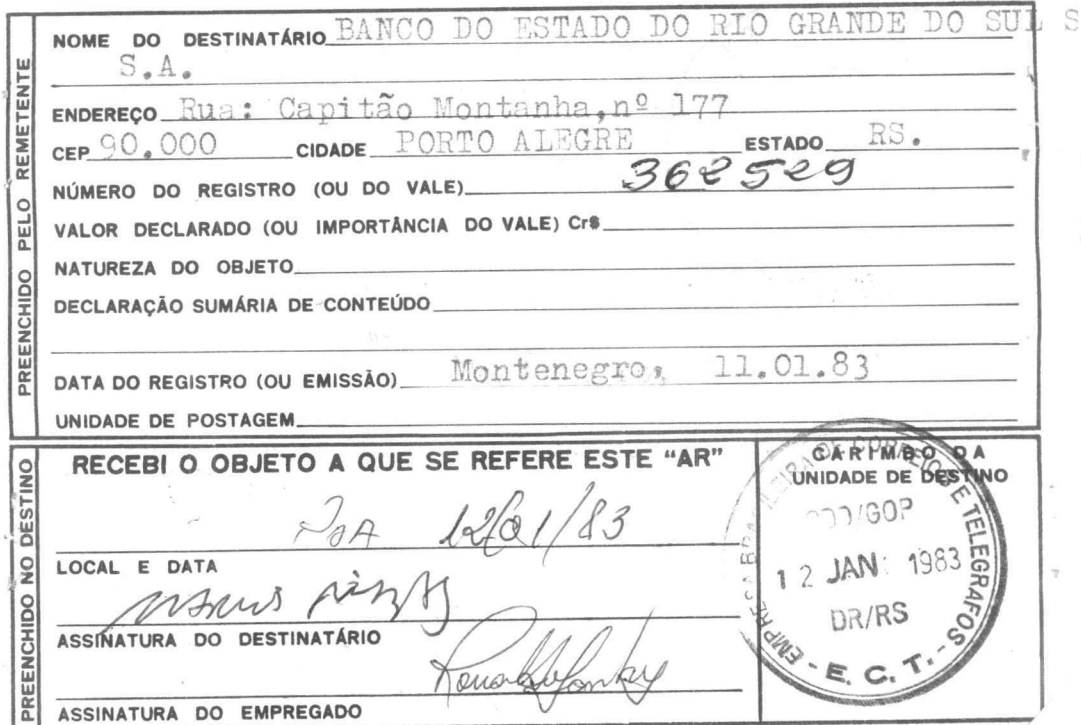 PREENCHIDO PELO REMETENTE
NOME DO DESTINATÁRIO BANCO DO ESTADO DO RIO GRANDE DO SUL S
S.A.
ENDEREÇO Rua: Capitão Montanha,nº 177
CEP 90.000 CIDADE PORTO ALEGRE ESTADO RS.
NÚMERO DO REGISTRO (OU DO VALE) 362529
VALOR DECLARADO (OU IMPORTÂNCIA DO VALE) Cr$
NATUREZA DO OBJETO
DECLARAÇÃO SUMÁRIA DE CONTEÚDO
DATA DO REGISTRO (OU EMISSÃO) Montenegro, 11.01.83
UNIDADE DE POSTAGEM
PREENCHIDO NO DESTINO
RECEBI O OBJETO A QUE SE REFERE ESTE “AR”
POA 12/01/83
LOCAL E DATA
ASSINATURA DO DESTINATÁRIO
ASSINATURA DO EMPREGADO
CARIMBO DA
UNIDADE DE DESTINO
EMPRESA BRASILEIRA DE CORREIOS E TELEGRAFOS
/GOP
12 JAN 1983
DR/RS
- E. C. T. -